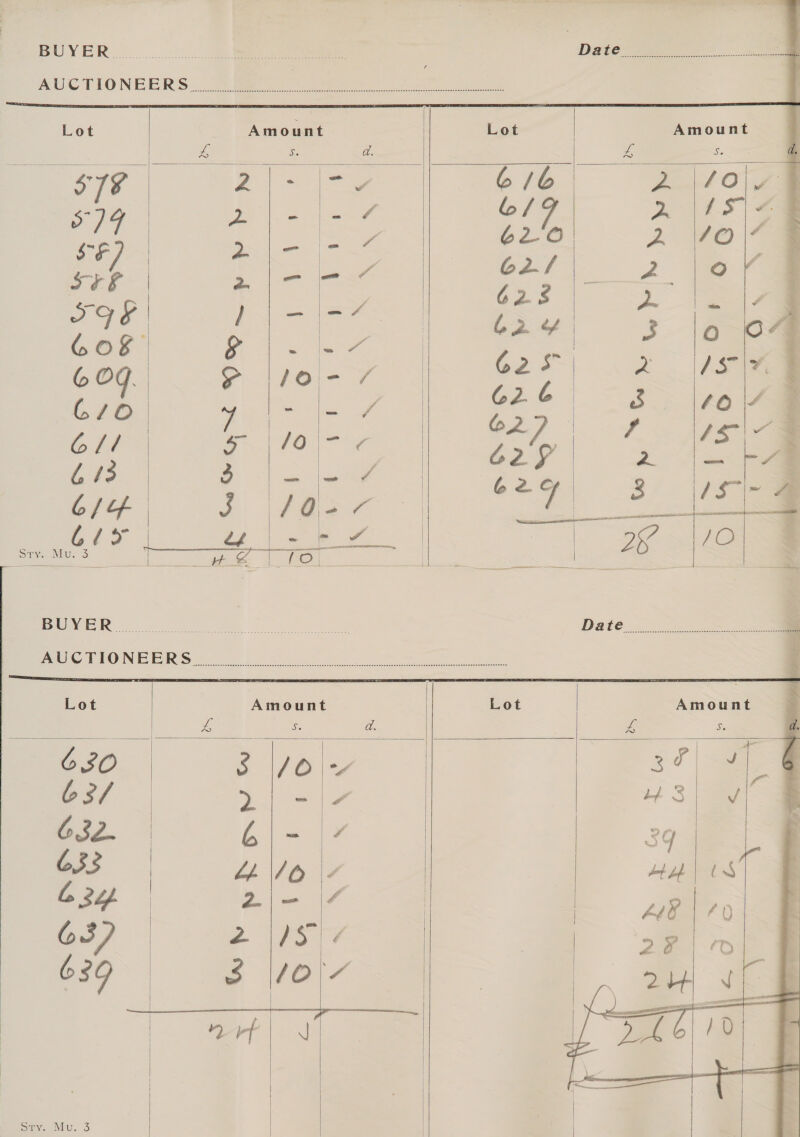 BUYER Date
AUCTIONEERS
Lot Amount
£ s. d.
578 2 - -
579 2 - -
587 2 - -
588 2 - -
598 1 - -
608 8 - -
609. 8 10 -
610 7 - -
611 5 10 -
613 3 - -
614 3 10 -
615 4 - -
48 10
Sty. Mu. 3
Lot Amount
£ s. d.
616 2 10
619 2 15
620 2 10
621 2 0
623 2 -
624 3 0 0
625 2 15
626 3 10
627 1 15
628 2 - -
629 3 15 -
28 10
BUYER Date
AUCTIONEERS
Lot Amount
£ s. d.
630 3 10 -
631 2 -
632 6 -
633 4 10
634 2 -
637 2 15
639 3 10
24 5
Sty. Mu. 3
Lot Amount
£ s. d.
38 5
43 5
39
44 15
48 10
28 10
24 5
£ 266 10